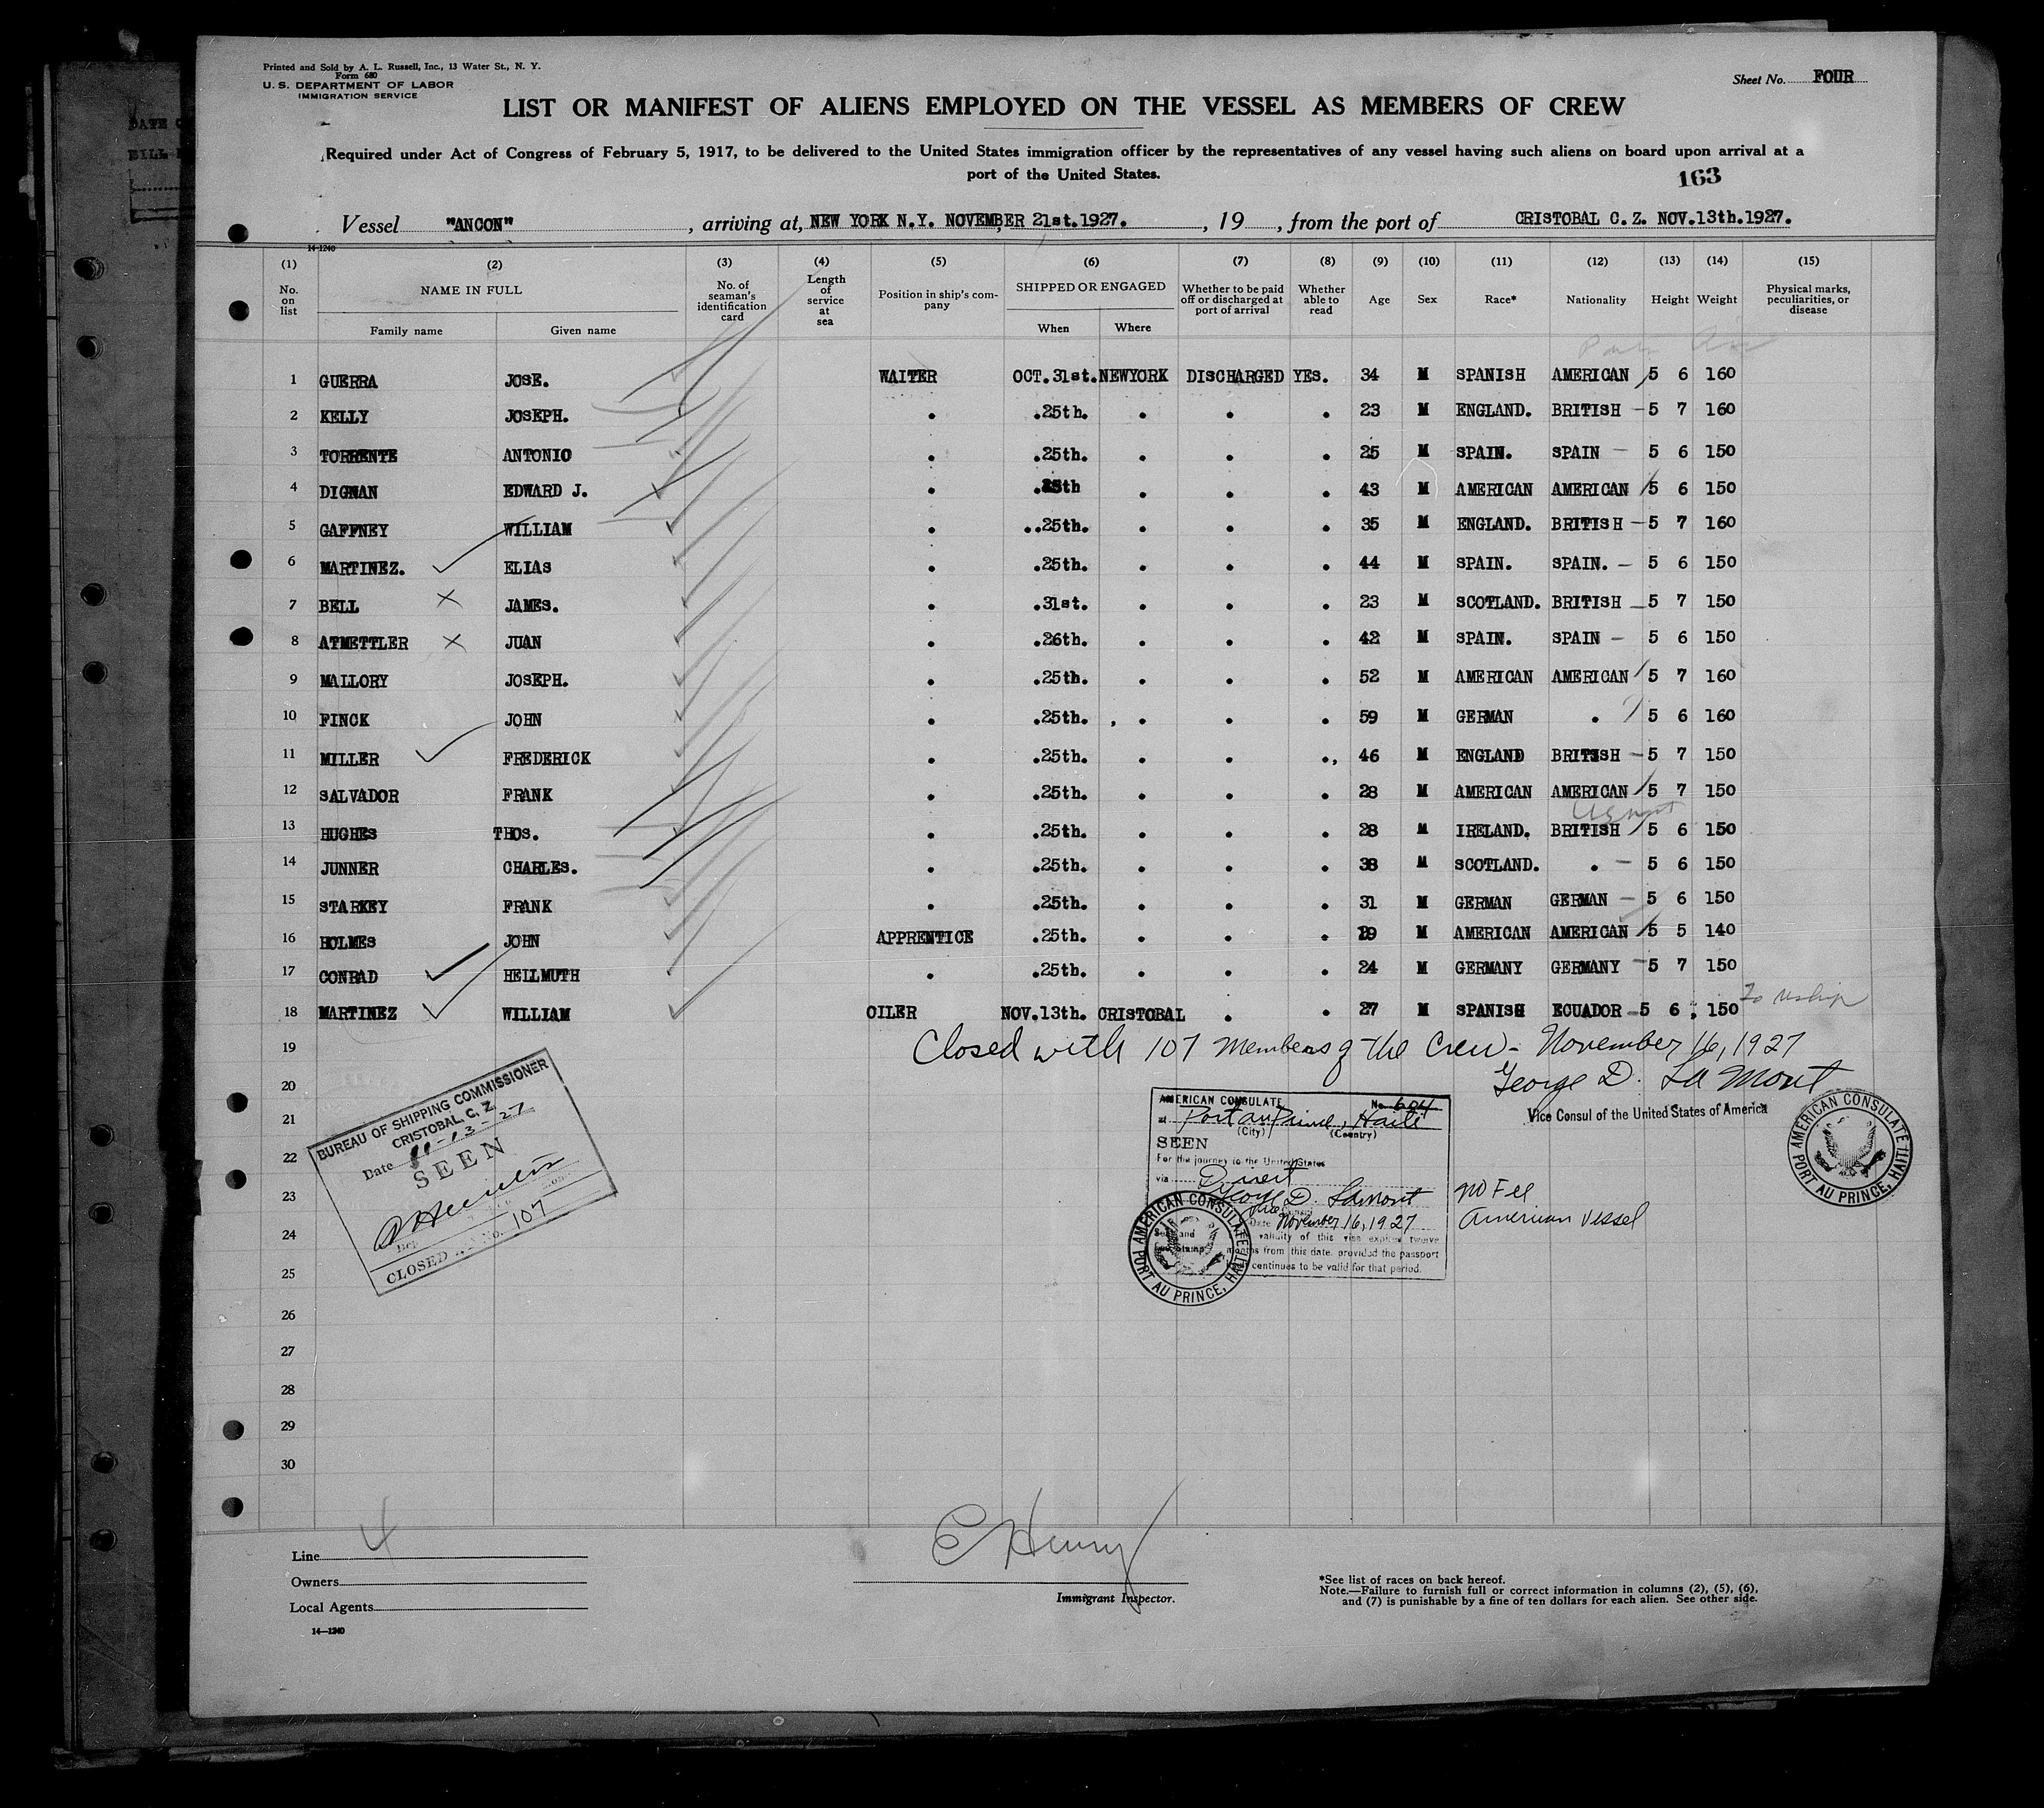 Printed and Sold by A. L. Russell, Inc., 13 Water St., N. Y.
Form 680
U. S. DEPARTMENT OF LABOR
IMMIGRATION SERVICE
Sheet No. FOUR
LIST OR MANIFEST OF ALIENS EMPLOYED ON THE VESSEL AS MEMBERS OF CREW
Required under Act of Congress of February 5, 1917, to be delivered to the United States immigration officer by the representatives of any vessel having such aliens on board upon arrival at a
port of the United States.
163
Vessel "ANCON", arriving at, NEW YORK N.Y. NOVEMBER 21st.1927., 19, from the port of CRISTOBAL C.Z. NOV.13th.1927.
14-1240
(1) (2) (3) (4) (5) (6) (7) (8) (9) (10) (11) (12) (13) (14) (15)
No. on list NAME IN FULL Family name Given name No. of seaman's identification card Length of service at sea Position in ship's company SHIPPED OR ENGAGED When Where Whether to be paid off or discharged at port of arrival Whether able to read Age Sex Race* Nationality Height Weight Physical marks, peculiarities, or disease
1 GUERRA JOSE. WAITER OCT.31st. NEWYORK DISCHARGED YES. 34 M SPANISH AMERICAN 5 6 160
2 KELLY JOSEPH. . .25th. . . . 23 M ENGLAND. BRITISH - 5 7 160
3 TORRENTE ANTONIO . .25th. . . . 25 M SPAIN. SPAIN - 5 6 150
4 DIGNAN EDWARD J. . . . . 43 M AMERICAN AMERICAN 5 6 150
5 GAFFNEY WILLIAM . ..25th. . . . 35 M ENGLAND. BRITISH - 5 7 160
6 MARTINEZ. ELIAS . .25th. . . . 44 M SPAIN. SPAIN. - 5 6 150
7 BELL X JAMES. . .31st. . . . 23 M SCOTLAND. BRITISH - 5 7 150
8 ATMETTLER X JUAN . .26th. . . . 42 M SPAIN. SPAIN - 5 6 150
9 MALLORY JOSEPH. . .25th. . . . 52 M AMERICAN AMERICAN 5 7 160
10 FINCK JOHN . .25th. . . . 59 M GERMAN . 5 6 160
11 MILLER FREDERICK . .25th. . . ., 46 M ENGLAND BRITISH - 5 7 150
12 SALVADOR FRANK . .25th. . . . 28 M AMERICAN AMERICAN 5 7 150
13 HUGHES THOS. . .25th. . . . 28 M IRELAND. BRITISH 5 6 150
14 JUNNER CHARLES. . .25th. . . . 38 M SCOTLAND. . - 5 6 150
15 STARKEY FRANK . .25th. . . . 31 M GERMAN GERMAN - 5 6 150
16 HOLMES JOHN APPRENTICE .25th. . . . M AMERICAN AMERICAN 5 5 140
17 CONRAD HELLMUTH . .25th. . . . 24 M GERMANY GERMANY - 5 7 150
18 MARTINEZ WILLIAM OILER NOV.13th. CRISTOBAL . . 27 M SPANISH ECUADOR - 5 6 150 To reship
19 Closed with 107 members of the Crew - November 16, 1927
20 George D. La Mont
21 Vice Consul of the United States of America
22
23
24
25
26
27
28
29
30
BUREAU OF SHIPPING COMMISSIONER
CRISTOBAL, C. Z.
Date 11-13-27
SEEN
CLOSED No. 107
AMERICAN CONSULATE No. 604
at Port au Prince, Haiti
(City) (Country)
SEEN
For the journey to the United States
via Direct
George D. Lamont
Vice
Date November 16, 1927
validity of this visa expires twelve
months from this date, provided the passport
continues to be valid for that period.
AMERICAN CONSULATE PORT AU PRINCE, HAITI
No Fee
American Vessel
AMERICAN CONSULATE PORT AU PRINCE, HAITI
4
Line
Owners
Local Agents
14-1240
C Henry
Immigrant Inspector.
*See list of races on back hereof.
Note.—Failure to furnish full or correct information in columns (2), (5), (6),
and (7) is punishable by a fine of ten dollars for each alien. See other side.